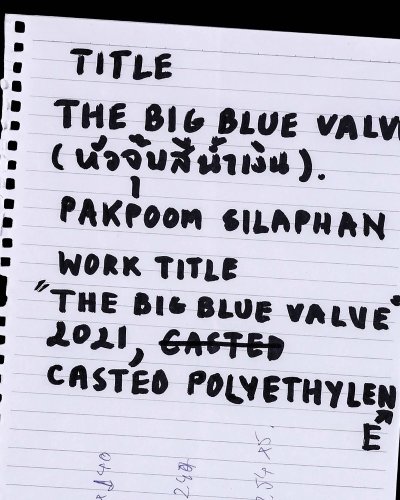 TITLE
THE BIG BLUE VALV
(หัวจุ๊บสีน้ำเงิน).
PAKPOOM SILAPHAN
WORK TITLE
"THE BIG BLUE VALVE"
2021, CASTED
CASTED POLYETHYLEN
E